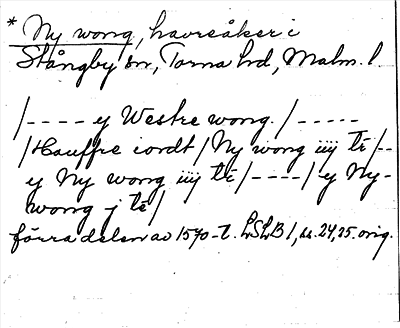 * Ny wong, havreåker i
Stångby sn, Torna hd, Malm. l.
/---- y Westre wong. /-----
/Hauffre iordt / Ny wong iiij te /--
y Ny wong iiij te /----/ y Ny-
wong j te /
förra delen av 1570-t. LSLB 1, ss. 24, 25. orig.